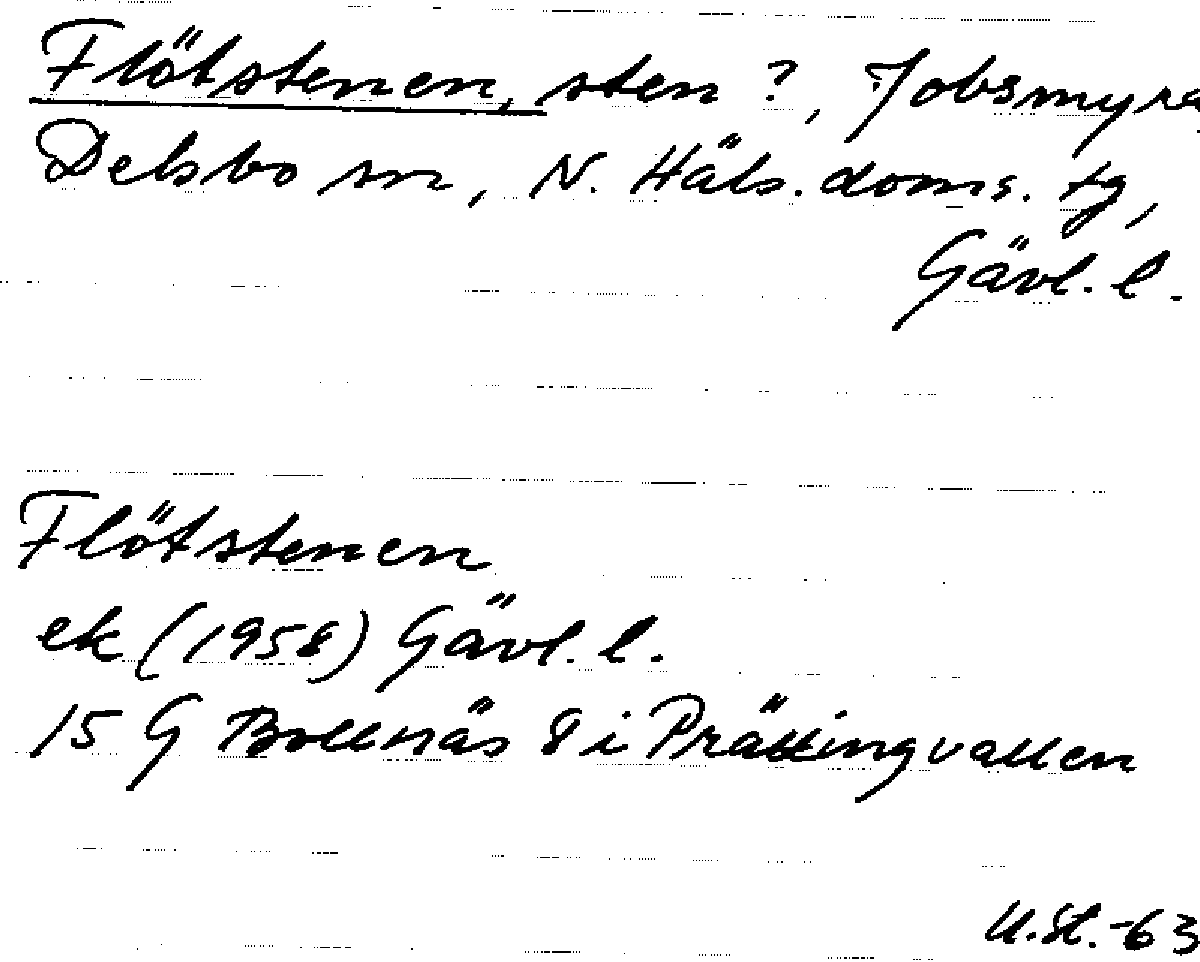 Flötstenen, sten ?, Jobsmyra,
Delsbo sn, N. Häls. doms. tg,
Gävl. l.
Flötstenen
ek (1958) Gävl. l.
15 G Bollnäs 8 i Prästingvallen
U.St.-63